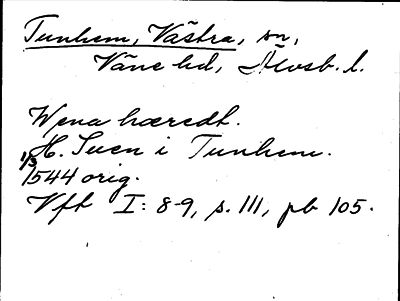 Tunhem, Västra, sn,
Väne hd, Älvsb. l.
Wena hæredt.
H. Suen i Tunhem.
1/3 1544 orig.
Vft I: 8-9, s. 111, pb 105.